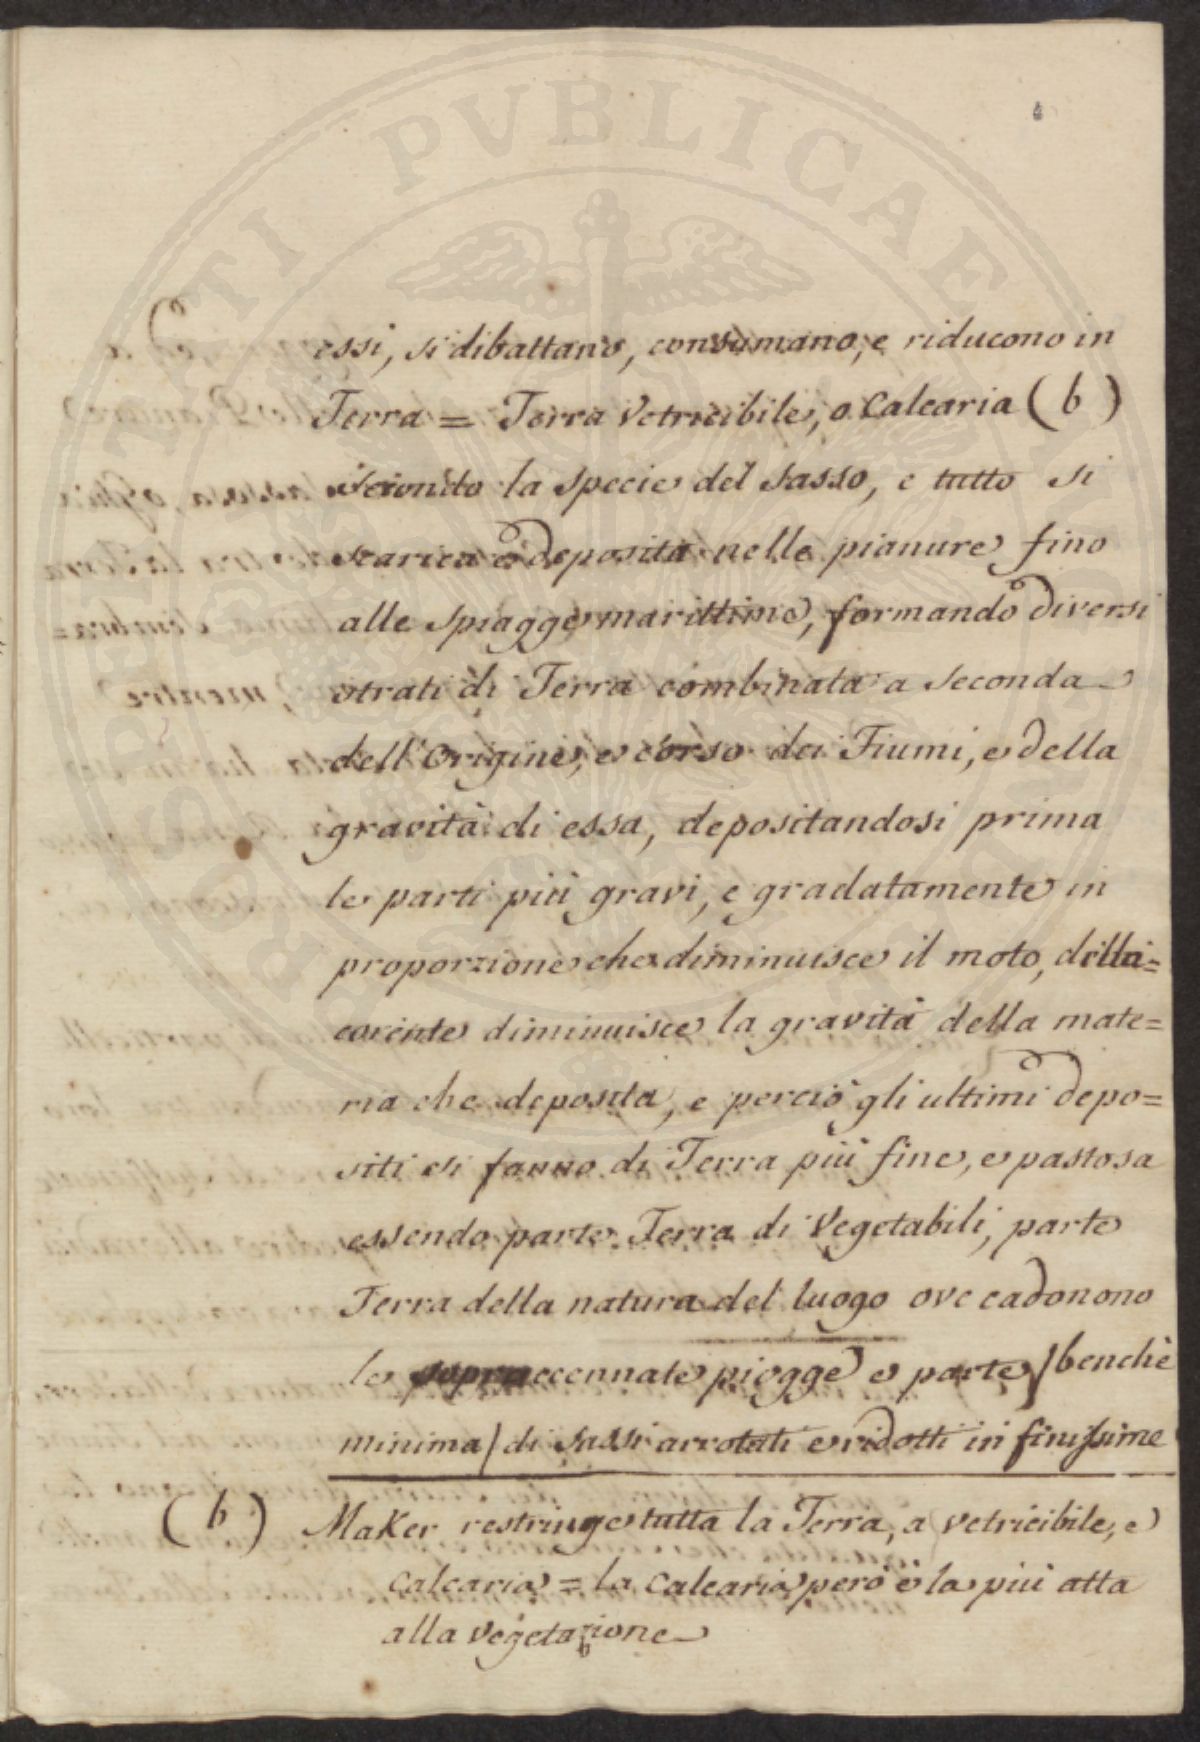 PROSPERITATI PVBLICAE AVGENDAE
essi, si dibattano, consumano, e riducono in
Terra = Terra Vetricibile, o Calcaria (b)
secondo la specie del sasso, e tutto si
scarica e deposita nelle pianure fino
alle spiagge marittime, formando diversi
strati di Terra combinata a seconda
dell'Origine, e corso dei Fiumi, e della
gravità di essa, depositandosi prima
le parti più gravi, e gradatamente in
proporzione che diminuisce il moto, della
corente diminuisce la gravità della mate=
ria che deposita, e perciò gli ultimi depo=
siti si fanno di Terra più fine, e pastosa
essendo parte Terra di Vegetabili, parte
Terra della natura del luogo ove cadonono
le sopraccennate piogge e parte / benchè
minima / di sassi arrotati e ridotti in finissime
(b) Maker restringe tutta la Terra, a vetricibile, e
calcaria = la calcaria però è la più atta
alla vegetazione